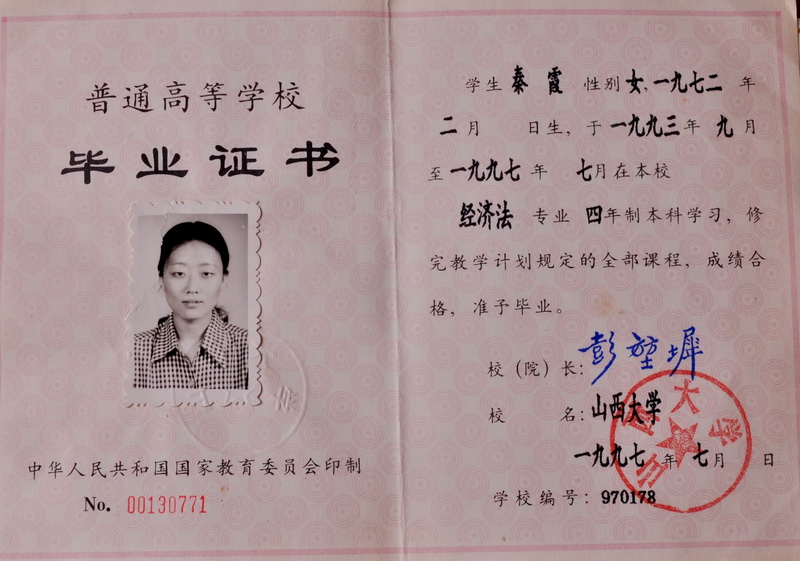 普通高等学校
毕业证书
中华人民共和国国家教育委员会印制
No. 00130771
学生 秦霞 性别 女，一九七二 年
二月 日生，于一九九三年 九月
至一九九七年 七月在本校
经济法 专业 四年制本科学习，修
完教学计划规定的全部课程，成绩合
格，准予毕业。
校（院）长：彭堃墀
校 名：山西大学
一九九七年 七月 日
学校编号：970178
山西大学